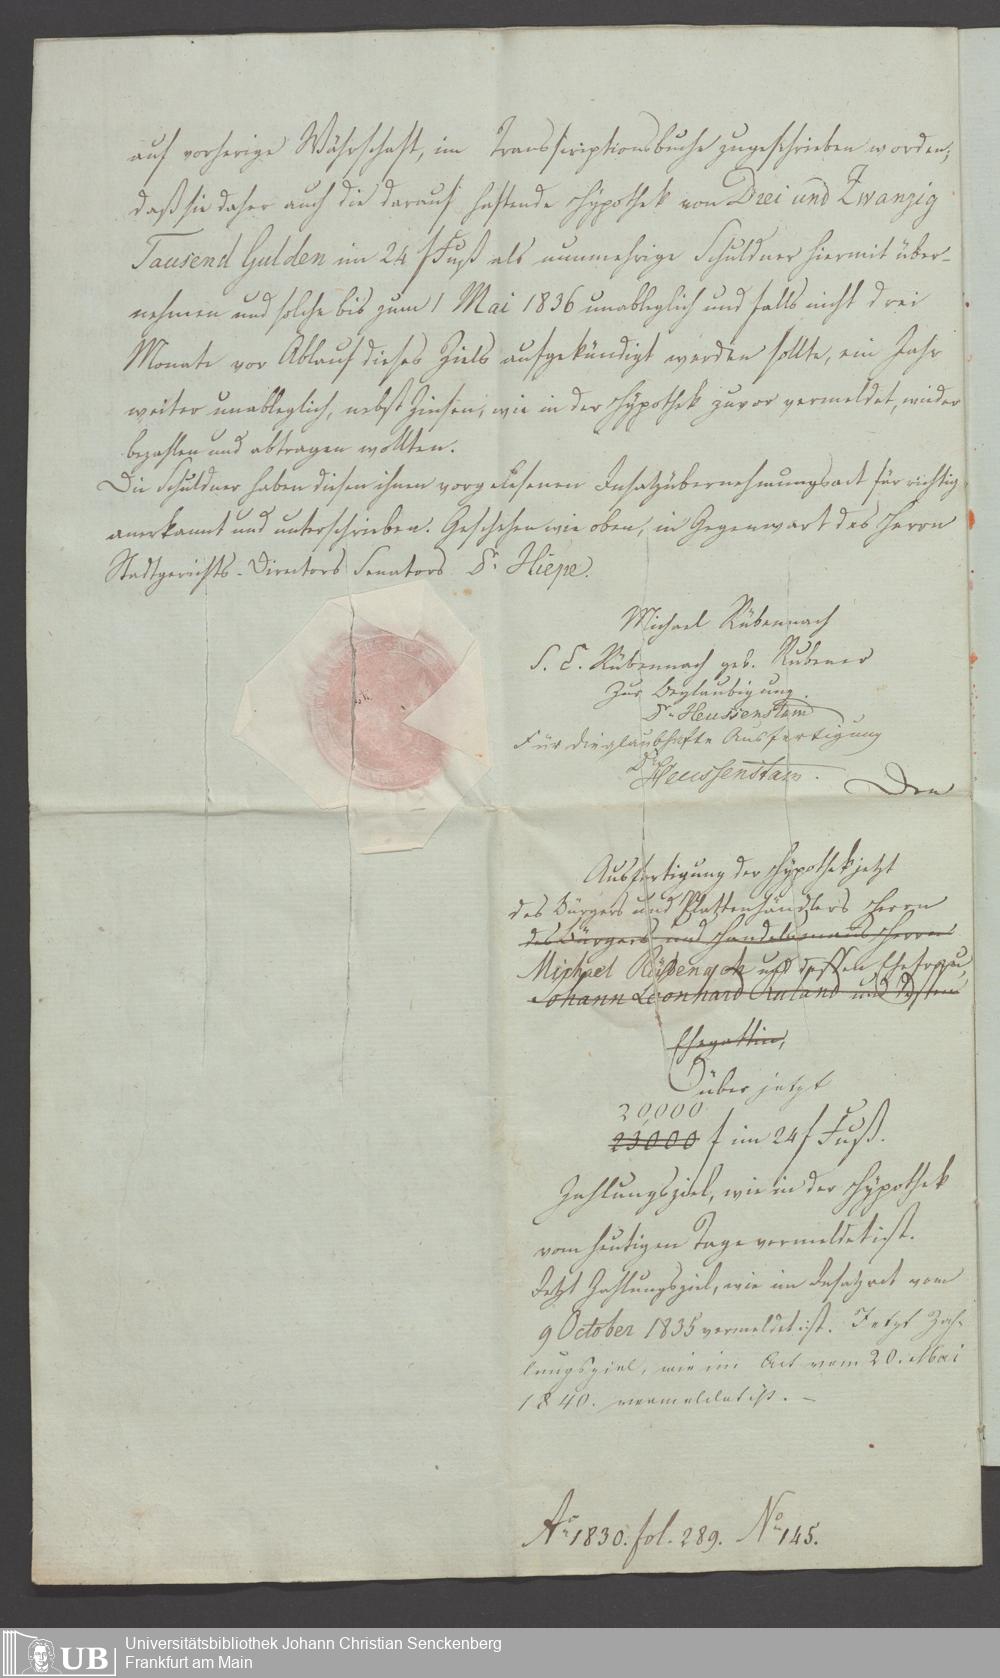 auf vorherige Währschaft, im Transscriptionsbuche zugeschrieben worden,
daß sie daher auch die darauf haftende Hypothek von Drei und Zwanzig
Tausend Gulden im 24 f Fuß als nunmehrige Schuldner hiermit über-
nehmen und solche bis zum 1 Mai 1836 unableglich und falls nicht drei
Monate vor Ablauf dieses Ziels aufgekündigt werden sollte, ein Jahr
weiter unableglich, nebst Zinsen, wie in der Hypothek zuvor vermeldet, wieder
bezahlen und abtragen wollten.
Die Schuldner haben diesen ihnen vorgelesenen Insatzübernehmungsact für richtig
anerkannt und unterschrieben. Geschehen wie oben, in Gegenwart des Herrn
Stadtgerichts-Directors Senators Dr. Hiepe.
Michael Rübennach
S. E. Rübennach geb. Rubener
Zur Beglaubigung.
Dr. Heussenstam
Für die glaubhafte Ausfertigung
Dr. Heussenstam.
Den
Ausfertigung der Hypothek jetzt
des Bürgers und Plattenhändlers Herrn
des Bürgers und Handelsmanns Herrn
Michael Rübenach und dessen Ehefrau,
Johann Leonhard Ruland und dessen
Ehegattin,
über jetzt
20,000
23000 f im 24 f Fuß.
Zahlungsziel, wie in der Hypothek
vom heutigen Tage vermeldet ist.
Jetzt Zahlungsziel, wie im Insatzact vom
9 October 1835 vermeldet ist. Jetzt Zah-
lungsziel, wie im Act vom 20. Mai
1840. vermeldet ist. –
Ao 1830. fol. 289. No 145.
UB
Universitätsbibliothek Johann Christian Senckenberg
Frankfurt am Main